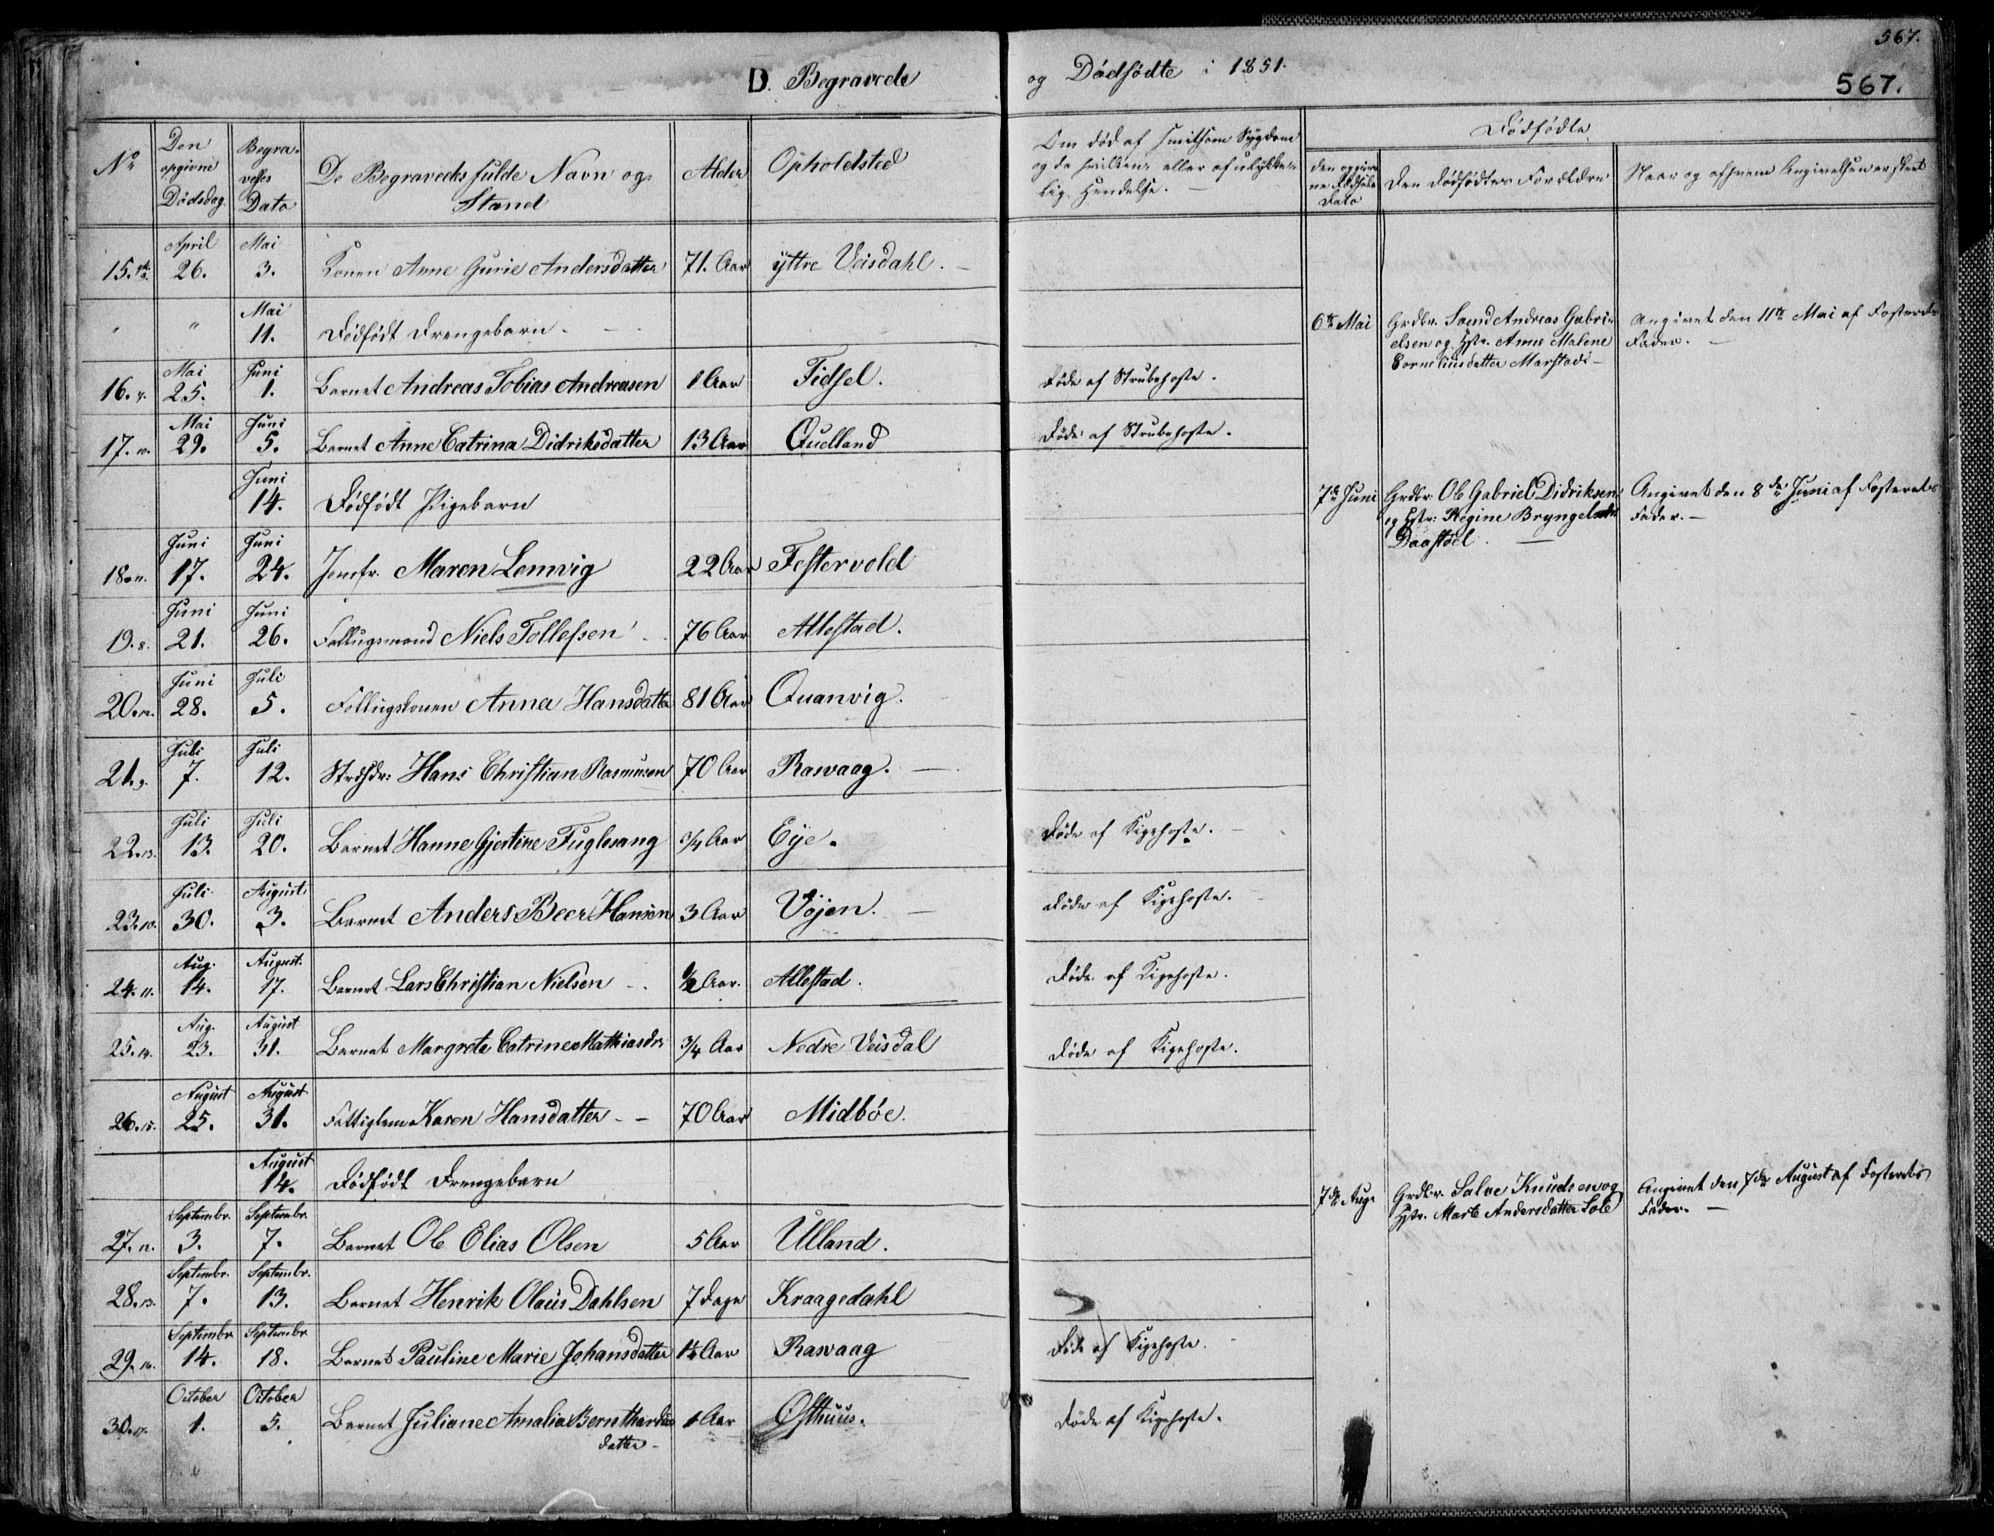 567.
D. Begravede og Dødfødte i 1851.
567.
No
Den opgivne Dødsdag
Begravelses Dato
De Begravedes fulde Navn og Stand
Alder
Opholdsted
Om død af smitsom Sygdom og da hvilken, eller af ulykkelig Hendelse.
Dødfødte
Den opgivne Fødsels Dato
Den Dødfødtes Forældre
Naar og af hvem Angivelsen er skeet
15. April 26. Mai 3. Konen Anne Gurie Andersdatter 71. Aar yttre Veisdahl.
" Mai 11. Dødfødt Drengebarn. 6te Mai Grdbr. Saund Andreas Gabrielsen og Hstr. Anne Malene Corneliusdatter Marstad Angivet den 11te Mai af Fosterets Fader.
16. Mai 25. Juni 1. Barnet Andreas Tobias Andreasen 1 Aar Fidsel. Døde af Strubehoste.
17. Mai 29. Juni 5. Barnet Anne Catrina Didriksdatter 13 Aar Quelland Døde af Strubehoste.
Juni 14. Dødfødt Pigebarn 7de Juni Grdbr. Ole Gabriel Didriksen og Hstr. Regine Daastøel. Angivet den 8de Juni af Fosterets Fader.
18. 11. Juni 17. Juni 24. Jomfr. Maren Lemvig 22 Aar Festervold
19. 8. Juni 21. Juni 26. Fallugsmand Niels Tollefsen 76 Aar Allestad.
20. 12. Juni 28. Juli 5. Follugskonen Anna Hansdatter 81 Aar Quanvig.
21. 9. Juli 7. Juli 12. Hans Christian Rasmusen 70 Aar Raswaag.
22. 13. Juli 13. Juli 20. Barnet Hanne Gjertine Fuglesang 3/4 Aar Eye. Døde af Kigehoste.
23. 10. Juli 30. August 3. Barnet Anders Beer Hansen 3 Aar Vøjen. Døde af Kigehoste.
24. 11. Aug. 14. August. 17. Barnet Lars Christian Nielsen 1/2 Aar. Allestad. Døde af Kigehoste.
25. 14. Aug. 23. August 31. Barnet Margrete Catrine Mathiasdr. 3/4 Aar Nedre Veisdal Døde af Kigehoste.
26. 15. August 25. August 31. Fattiglem Karen Hansdatter 70 Aar Midbøe.
August 14. Dødfødt Drengebarn 7de Aug. Grdbr. Salve Knudsen og Hstr. Marte Andersdatter Angivet den 7de August af Fosterets Fader.
27. Septembr. 3. Septembr. 7. Barnet Ole Elias Olsen 5 Aar Ulland.
28. 13. Septembr. 7. Septembr. 13. Barnet Henrik Olaus Dahlsen 7 Dage Kraagedahl
29. 16. Septembr. 14. Septembr. 18. Barnet Pauline Marie Johansdatter Aar Raswaag Døde af Kigehoste.
30. 17. October 1. October 5. Barnet Juliane Amalia datter 1 Aar Østhuus. Døde af Kigehoste.